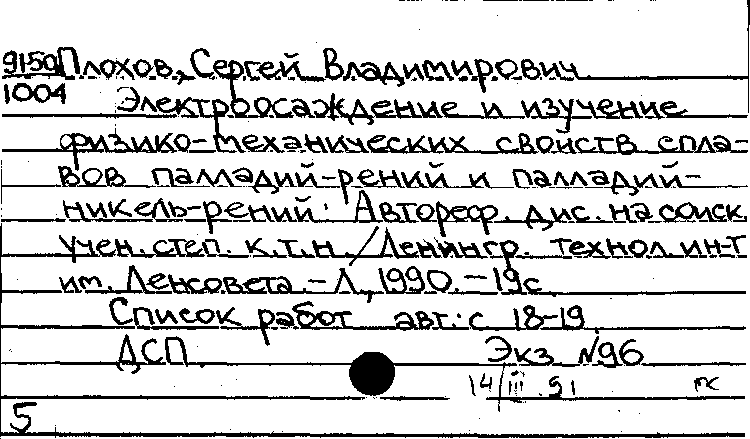 9150 Плохов, Сергей Владимирович
1004 Электроосаждение и изучение
физико-механических свойств спла-
вов палладий-рений и палладий-
никель-рений: Автореф. дис. на соиск.
учен. степ. к.т.н. / Ленингр. технол. ин-т
им. Ленсовета. - Л., 1990. - 19с.
Список работ авт.: с 18-19.
ДСП. Экз №96
14/III.91 пс
5